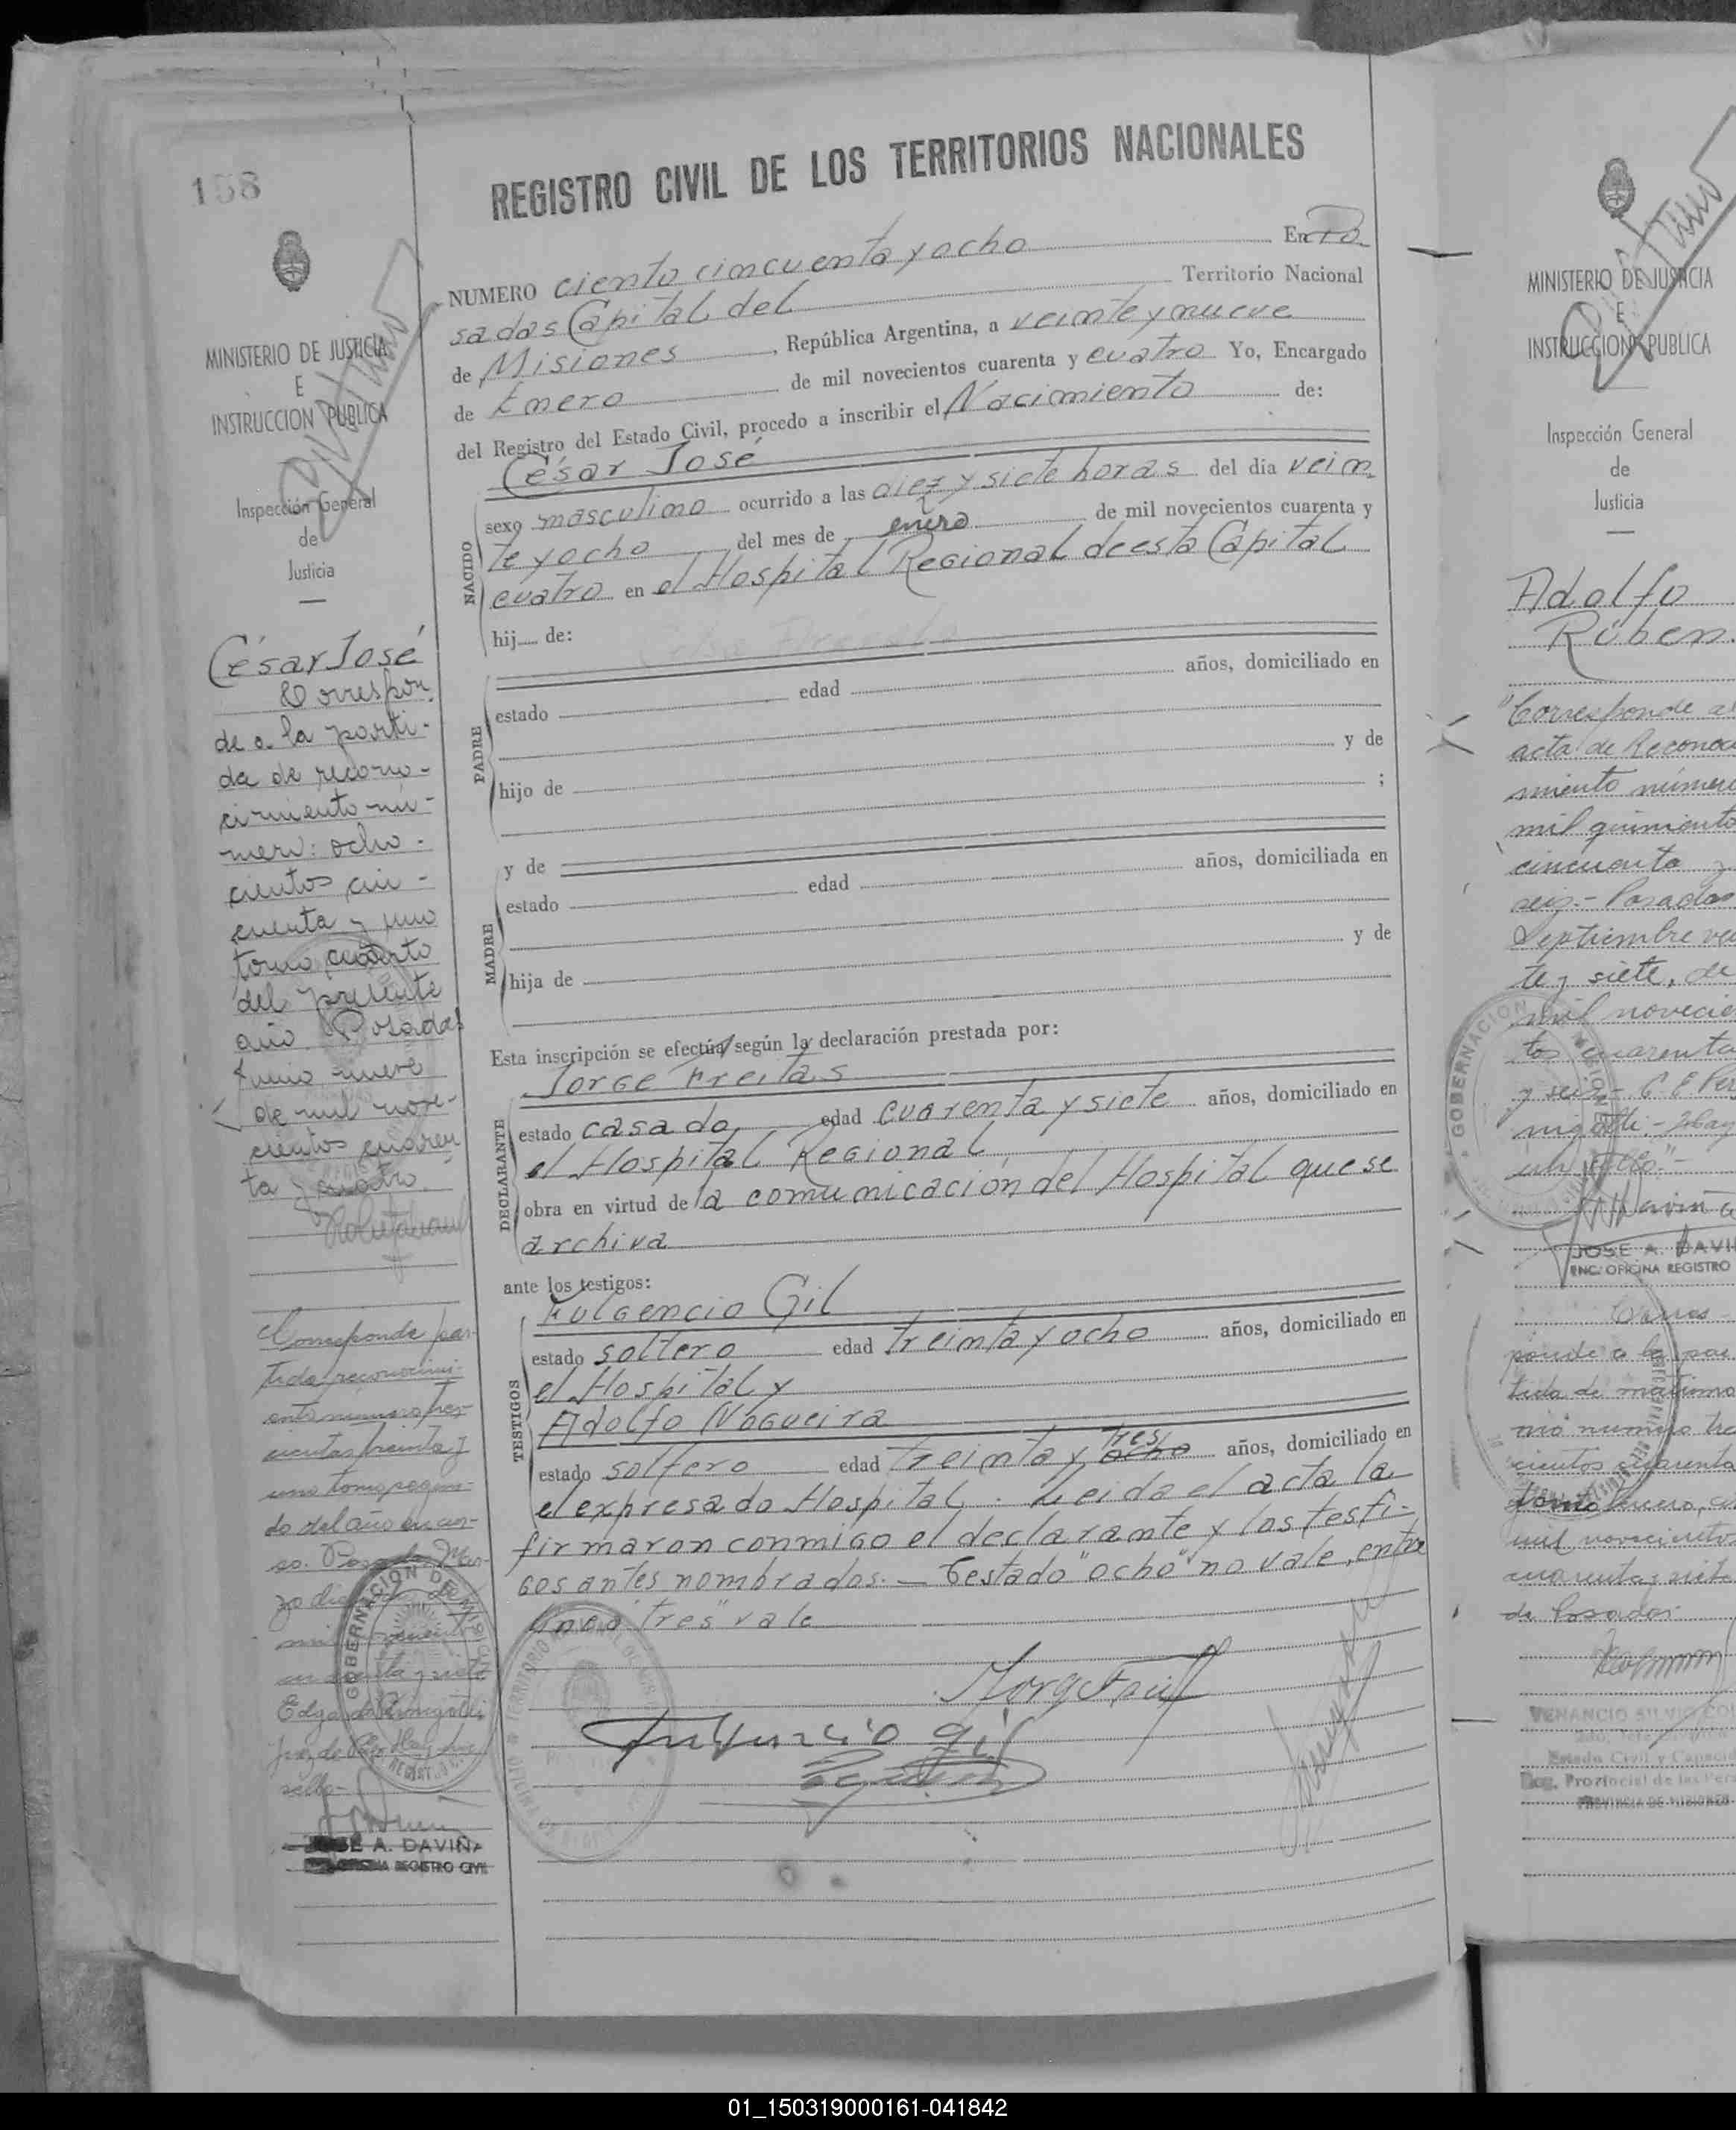 158
MINISTERIO DE JUSTICIA
E
INSTRUCCION PUBLICA
Inspección General
de
Justicia
César José
Correspon
de a la parti-
da de recono-
cimiento nú-
mero: ocho-
cientos cin-
cuenta y uno
tomo cuarto
del presente
año. Posadas
Junio nueve
de mil nove-
cientos cuaren
ta y cuatro.
Corresponde par-
tida reconocimi-
ento numero tres-
cientos treinta y
uno tomo segun-
do del año en cur-
so. Posadas Mar-
zo
cuarenta y siete
sello-
JOSE A. DAVIÑA
OFICINA REGISTRO CIVIL
REGISTRO CIVIL DE LOS TERRITORIOS NACIONALES
NUMERO ciento cincuenta y ocho En Po
sadas Capital del Territorio Nacional
de Misiones, República Argentina, a veinte y nueve
de Enero de mil novecientos cuarenta y cuatro Yo, Encargado
del Registro del Estado Civil, procedo a inscribir el Nacimiento de:
César José
NACIDO
sexo masculino ocurrido a las diez y siete horas del día vein
te y ocho del mes de enero de mil novecientos cuarenta y
cuatro en el Hospital Regional de esta Capital
hij de:
PADRE
estado edad años, domiciliado en
hijo de y de
;
y de
MADRE
estado edad años, domiciliada en
hija de y de
Esta inscripción se efectúa según la declaración prestada por:
Jorge Freitas
DECLARANTE
estado casado edad cuarenta y siete años, domiciliado en
el Hospital Regional
obra en virtud de la comunicación del Hospital que se
archiva
ante los testigos:
Fulgencio Gil
TESTIGOS
estado soltero edad treinta y ocho años, domiciliado en
el Hospital y
Adolfo Nogueira
estado soltero edad treinta y ocho tres años, domiciliado en
el expresado Hospital. Leida el acta la
firmaron conmigo el declarante y los testi-
gos antes nombrados.- Testado "ocho" no vale, entre
linea "tres" vale
Fulgencio Gil
MINISTERIO DE JUSTICIA
E
INSTRUCCION PUBLICA
Inspección General
de
Justicia
Adolfo
Rúben.
"Corresponde al
acta de Reconoci
miento número
mil quiniento
cincuenta y
seis.- Posadas
Septiembre vein
te y siete, de
mil novecien
tos cuarenta
y seis-
JOSE A. DAVIÑ
ENC. OFICINA REGISTRO
Corres
ponde a la par
tida de matrimo
nio numero tre
cientos cuarenta
tomo tercero,
mil novecientos
cuarenta y siete
de Posadas.
VENANCIO SILVIO
Estado Civil y Capacid
Reg. Provincial de las Pers
PROVINCIA DE MISIONES
01_150319000161-041842